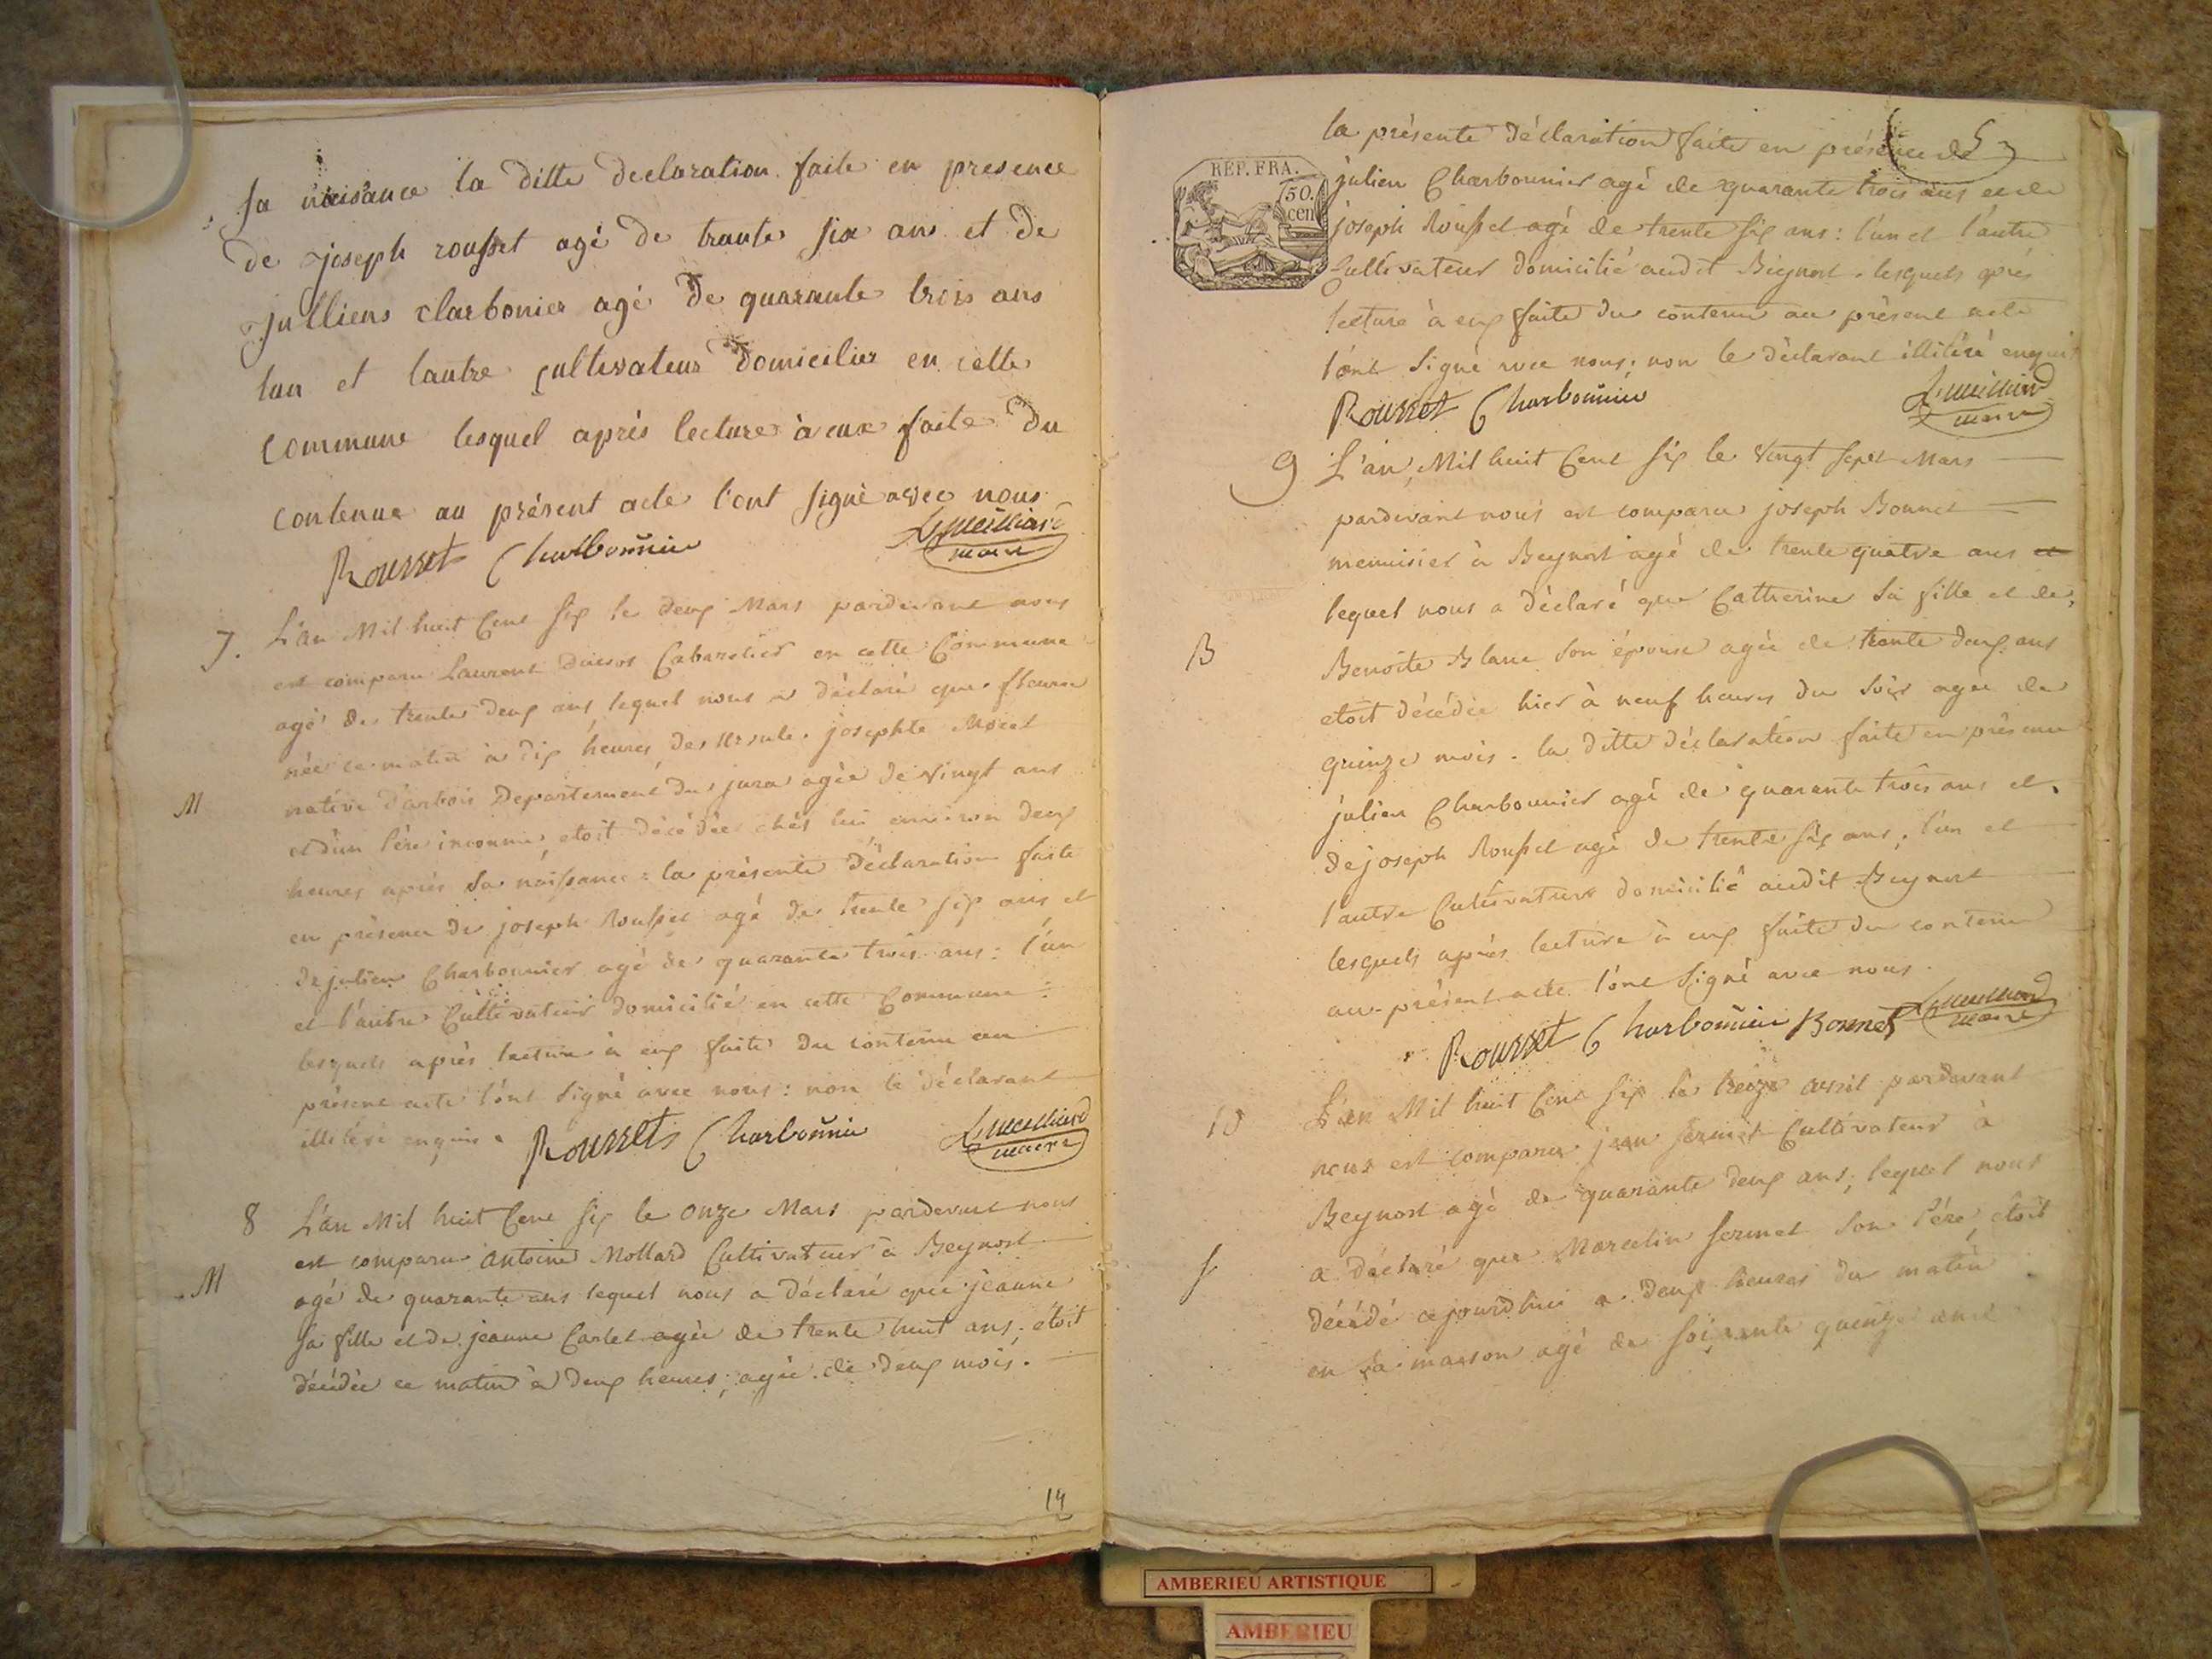 sa naisance la ditte declaration faite en presence
de joseph rousset agé de trante six ans et de
julliens charbonier agé de quarante trois ans
lun et lautre cultivateur domicilier en cette
commune lesquel aprés lecture à eux faite du
contenue au présent acte l'ont signé avec nous
Rousset Charbonnier
maire
7. L'an Mil huit Cent six le deux Mars pardevant nous
est comparu Laurent Cabaretier en cette Commune
agé de trente deux ans, lequel nous a déclaré que fleurie
née ce matin à dix heures, des Ursule. josephte Morel
native d'arbois Departement du jura agée de vingt ans
M
et d'un Pére inconnu, etoit décédée chés lui environ deux
heures aprés sa naissance: la présente déclaration faite
en présence de joseph Rousset agé de trente six ans et
de julien Charbonnier agé de quarante trois ans: l'un
et l'autre Cultivateur domicilié en cette Commune:
lesquels aprés lecture à eux faite du contenu au
présent acte l'ont signé avec nous: non le déclarant
illitéré enquis. Rousset Charbonnier
maire
8 L'an Mil huit Cent six le onze Mars pardevant nous
est comparu antoine Mollard Cultivateur à Beynost
M
agé de quarante ans lequel nous a déclaré que jeanne
sa fille et de jeanne Carlet agée de trente huit ans, étoit
décédée ce matin à deux heures, agée de deux mois.
14
5
la présente déclaration faite en présence de
REP. FRA.
50. cen
julien Charbonnier agé de quarante trois ans et de
joseph Rousset agé de trente six ans: l'un et l'autre
Cultivateur domicilié audit Beynost. lesquels aprés
lecture à eux faite du contenu au présent acte
l'ont signé avec nous; non le déclarant illitéré enquis
Rousset Charbonnier
maire
9 L'an, Mil huit Cent six le vingt sept Mars
pardevant nous est comparu joseph Bonnet
menuisier à Beynost agé de trente quatre ans
lequel nous a déclaré que Catherine sa fille et de
B
Benoite Blanc son épouse agée de trente deux ans
etoit décédée hier à neuf heures du soir agée de
quinze mois. la ditte déclaration faite en présence
julien Charbonnier agé de quarante trois ans et
de joseph Rousset agé de trente six ans, l'un et
l'autre Cultivateur domicilié audit Beynost
lesquels aprés lecture à eux faite du contenu
au présent acte l'ont signé avec nous.
Rousset Charbonnier Bonnet
maire
10 L'an Mil huit Cent six le treize avril pardevant
nous est comparu jean sermet Cultivateur à
Beynost agé de quarante deux ans, lequel nous
S
a déclaré que Marcelin sermet son Pére, étoit
décédé cejourd'hui a deux heures du matin
en sa maison agé de soixante quinze ans
AMBERIEU ARTISTIQUE
AMBERIEU